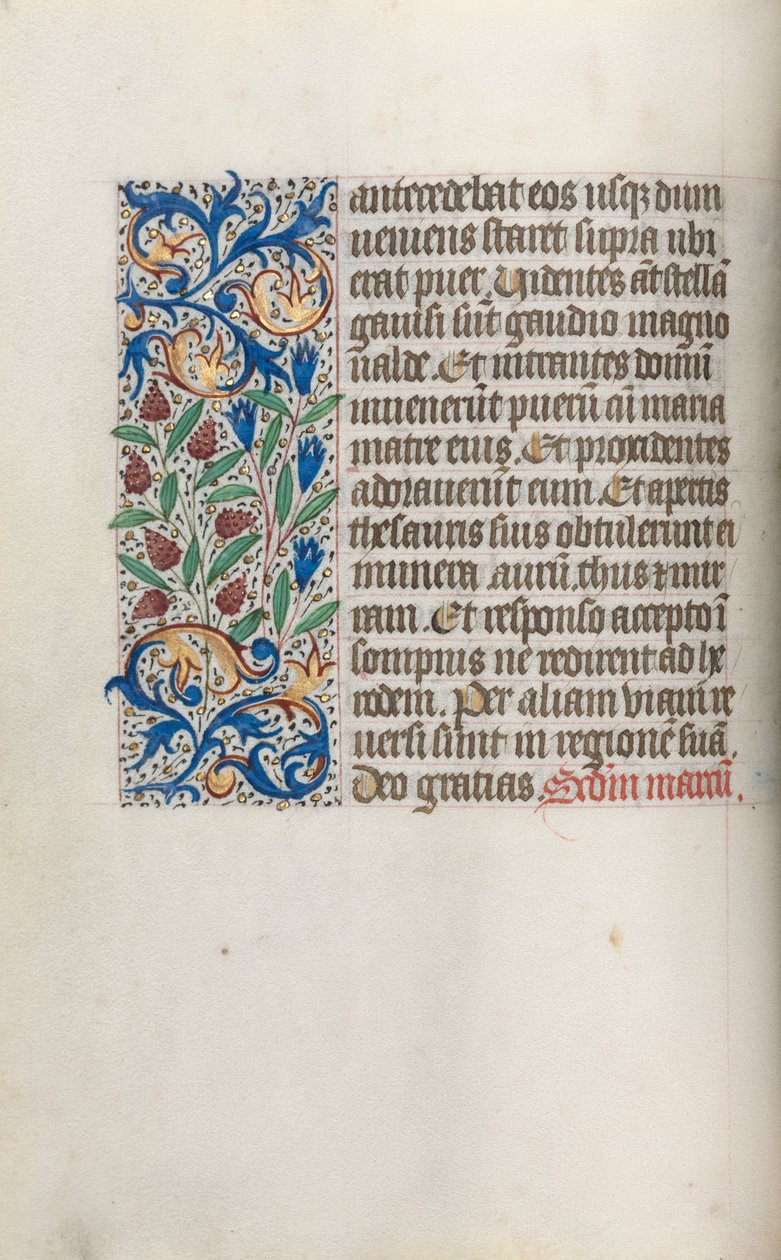 antecedebat eos usq; dum
ueniens staret supra ubi
erat puer. Uidentes at̄ stellā
gauisi sūt gaudio magno
ualde. Et intrantes domū
inuenerūt puerū cū maria
matre eius. Et procidentes
adorauerūt eum. Et apertis
thesauris suis obtulerunt ei
munera aurū, thus ⁊ mir
ram. Et responso accepto ī
sompnis ne redirent ad he
rodem. Per aliam viam re
uersi sunt in regionē suā.
Deo gratias. Scdm̄ marcū.